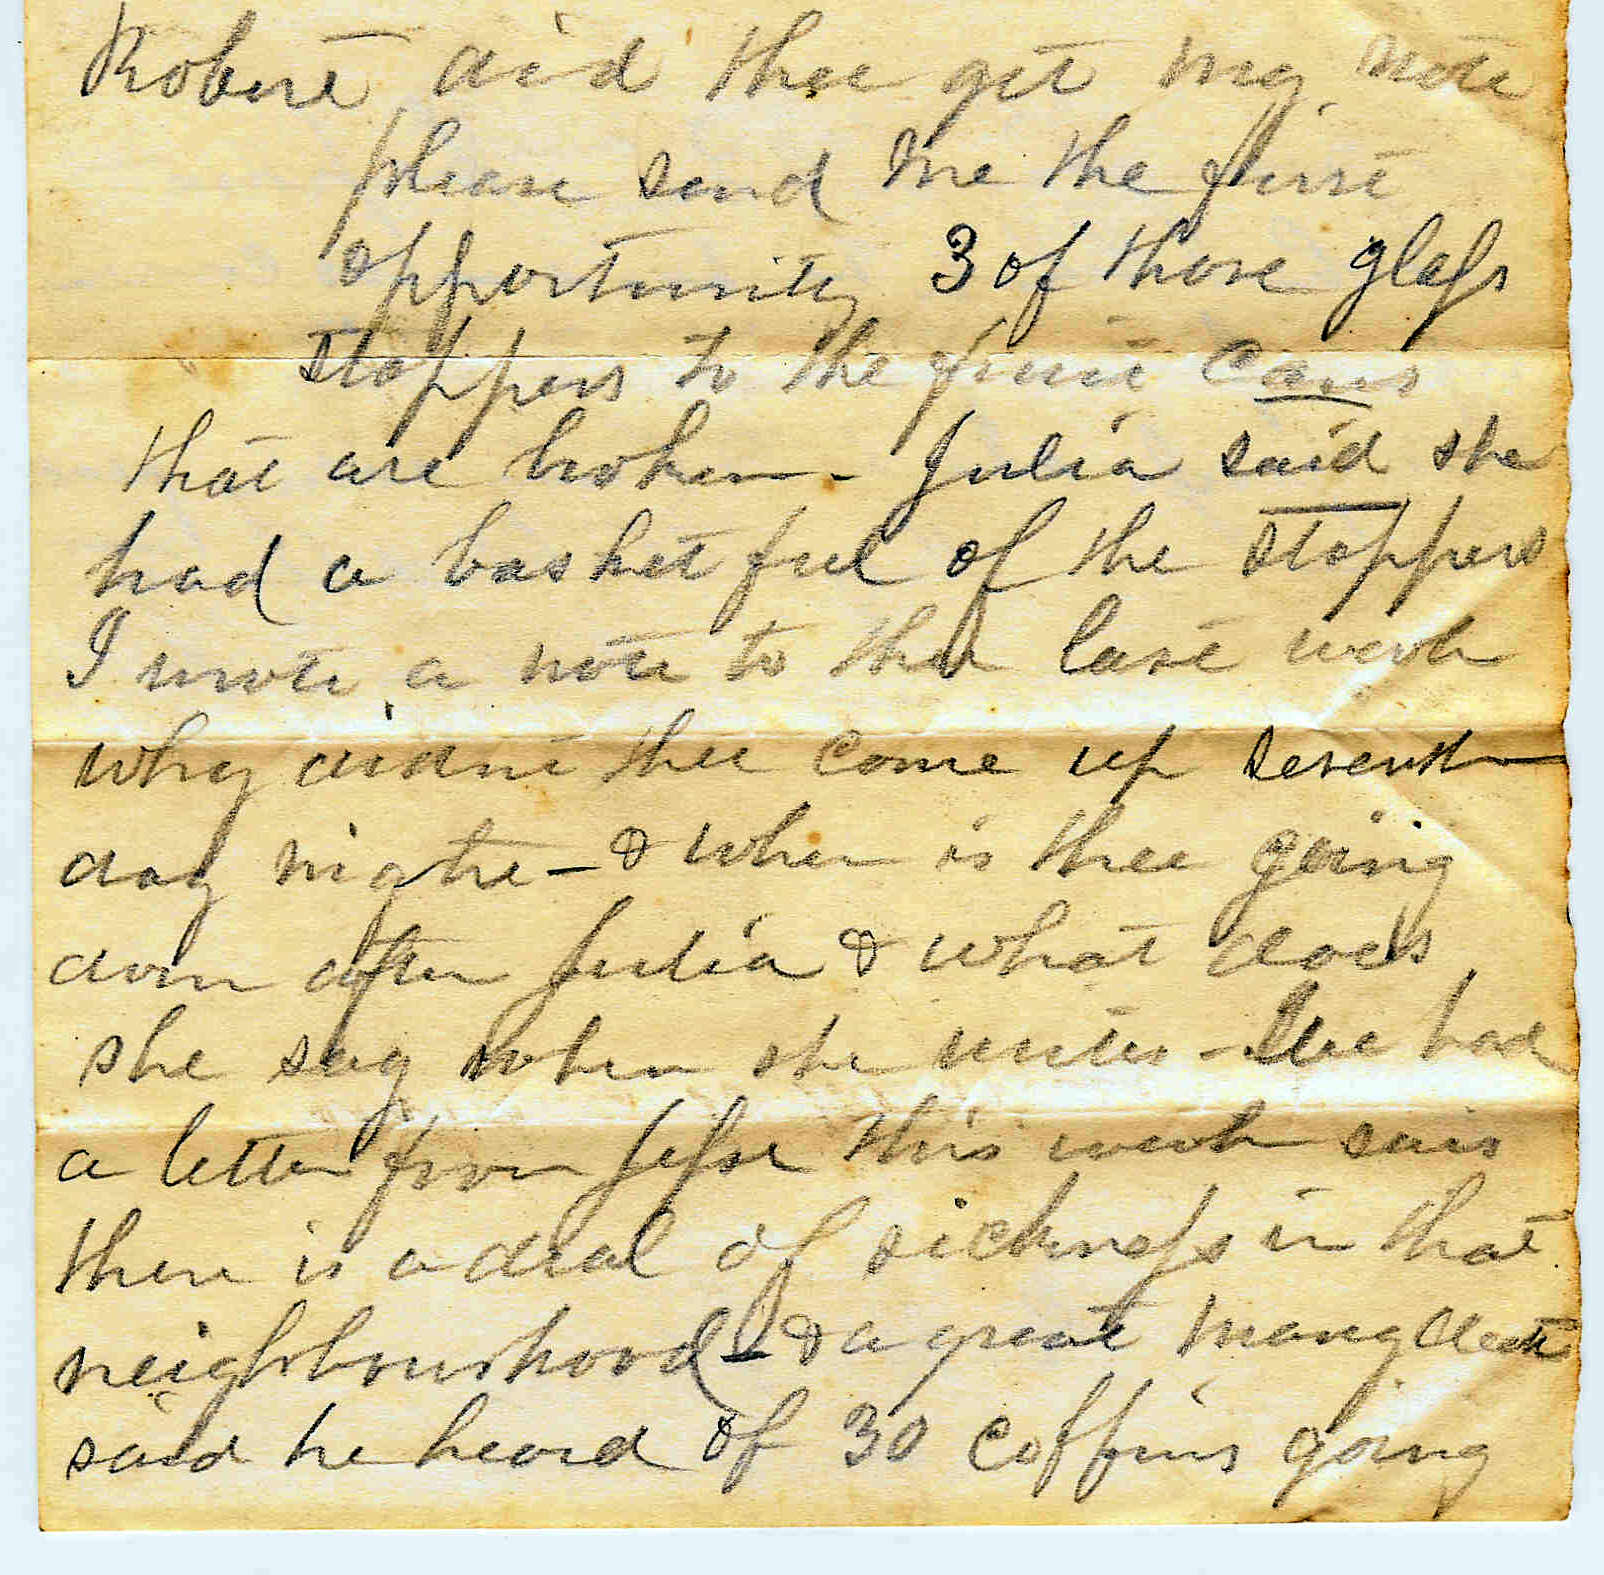 Robert did thee get my note
please send me the first
opportunity 3 of those glass
stoppers to the fruit cans
that are broken - Julia said she
had a basket full of the stoppers
I wrote a note to thee last week
why didnt thee come up seventh
day night - & when is thee going
down after Julia & what does
she say when she writes - We had
a letter from Jesse this week says
there is a deal of sickness in that
neighbourhood - & a great many deaths
said he heard of 30 coffins going